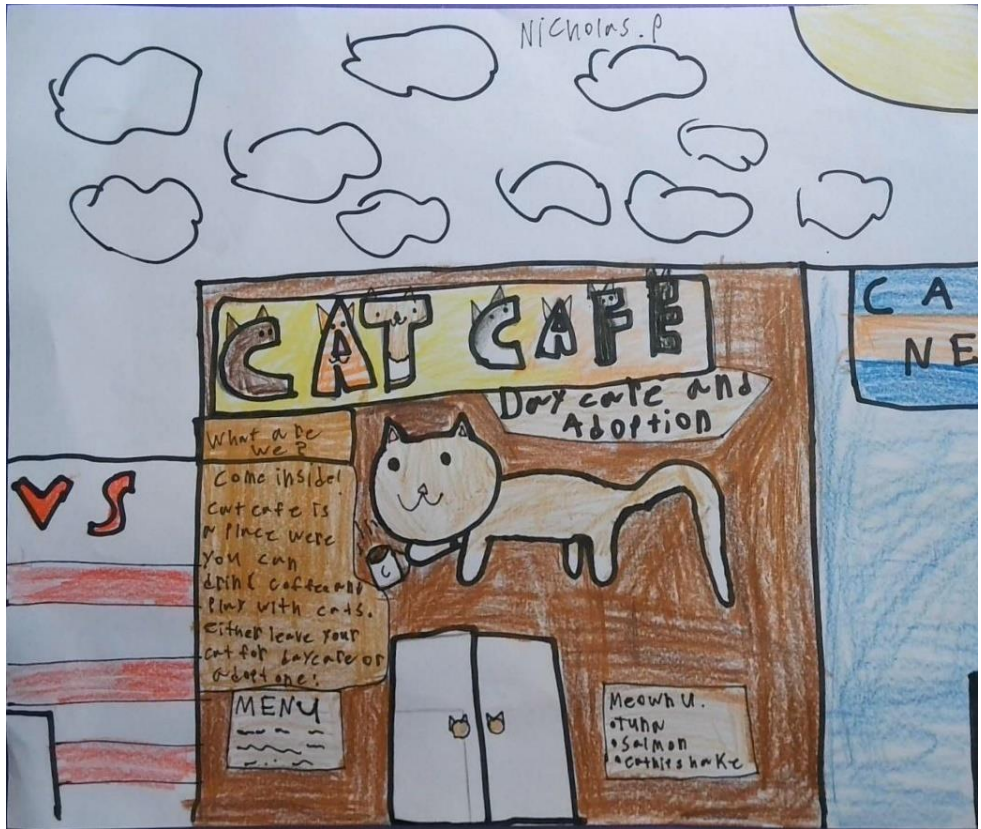 Nicholas. P
CAT CAFE
Daycare and
Adoption
What are
we?
Come inside!
cat cafe is
a place were
you can
drink coffee and
Play with cats.
either leave your
cat for daycare or
adopt one!
MENU
Meownu.
•Tuna
•Salmon
VS
C A
N E
C